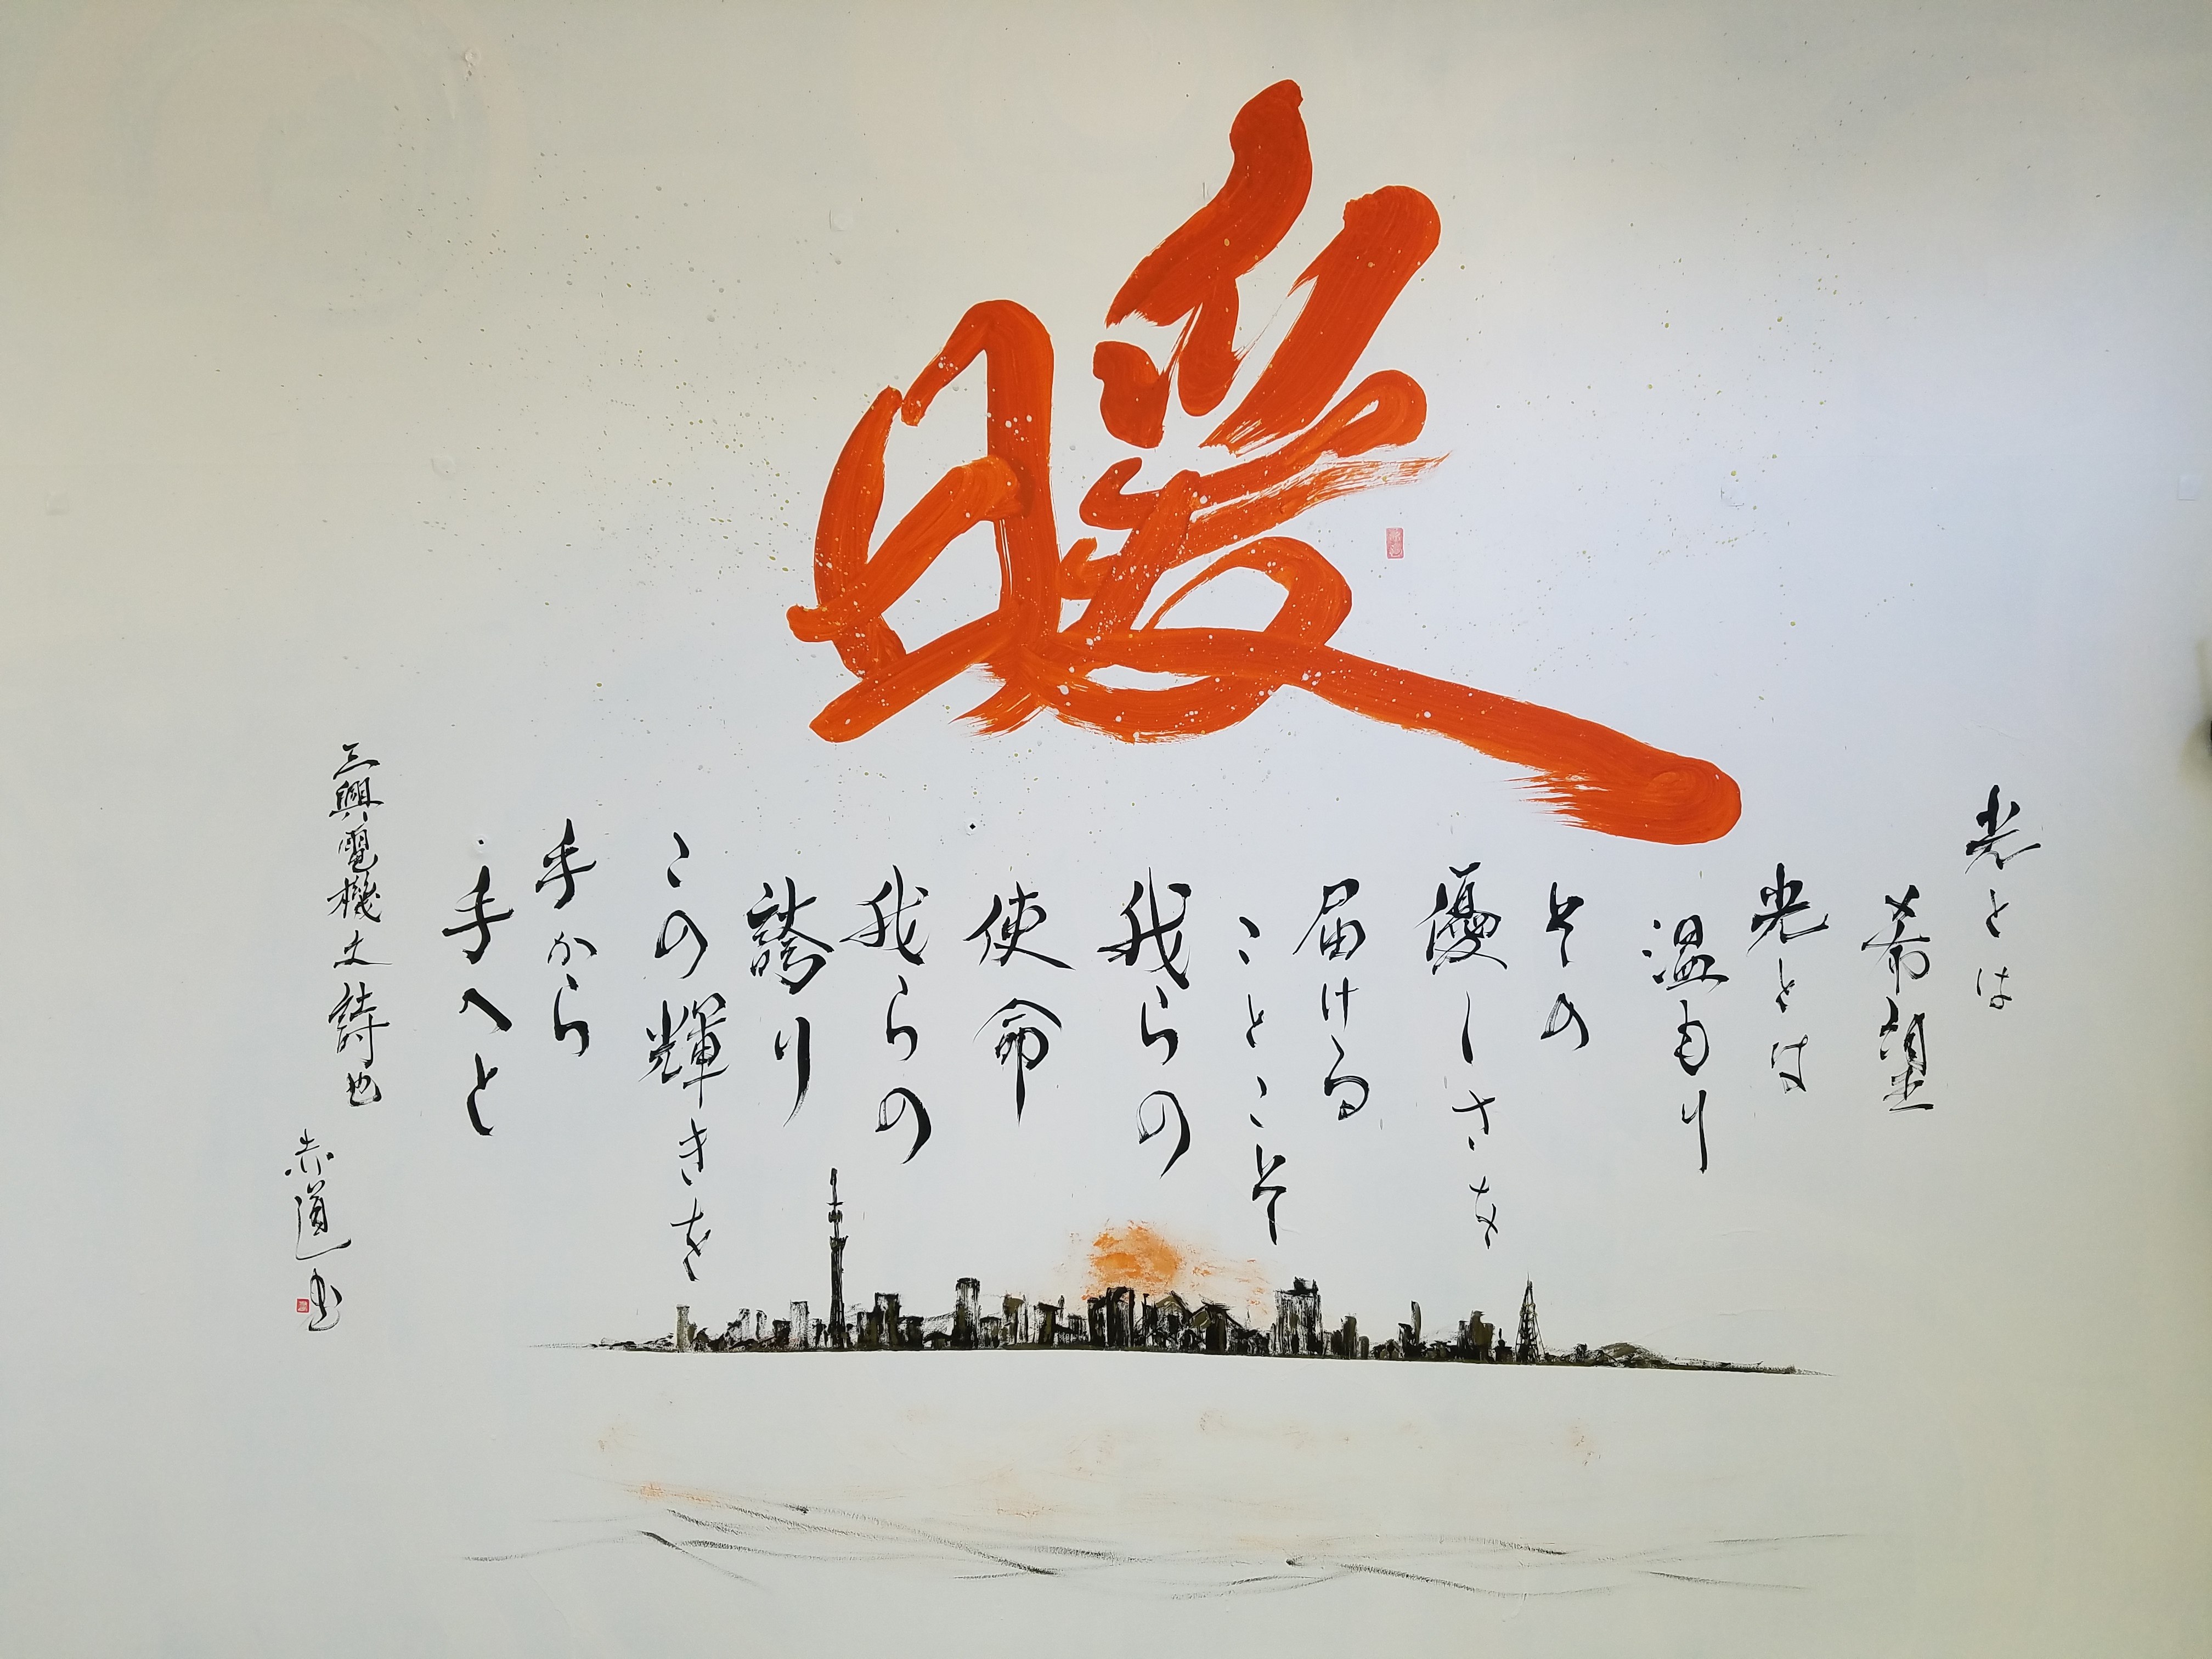 暖
光とは
希望
光とは
温もり
その
優しさを
届ける
ことこそ
我らの
使命
我らの
誇り
この輝きを
手から
手へと
三興電機 詩也
赤道 書